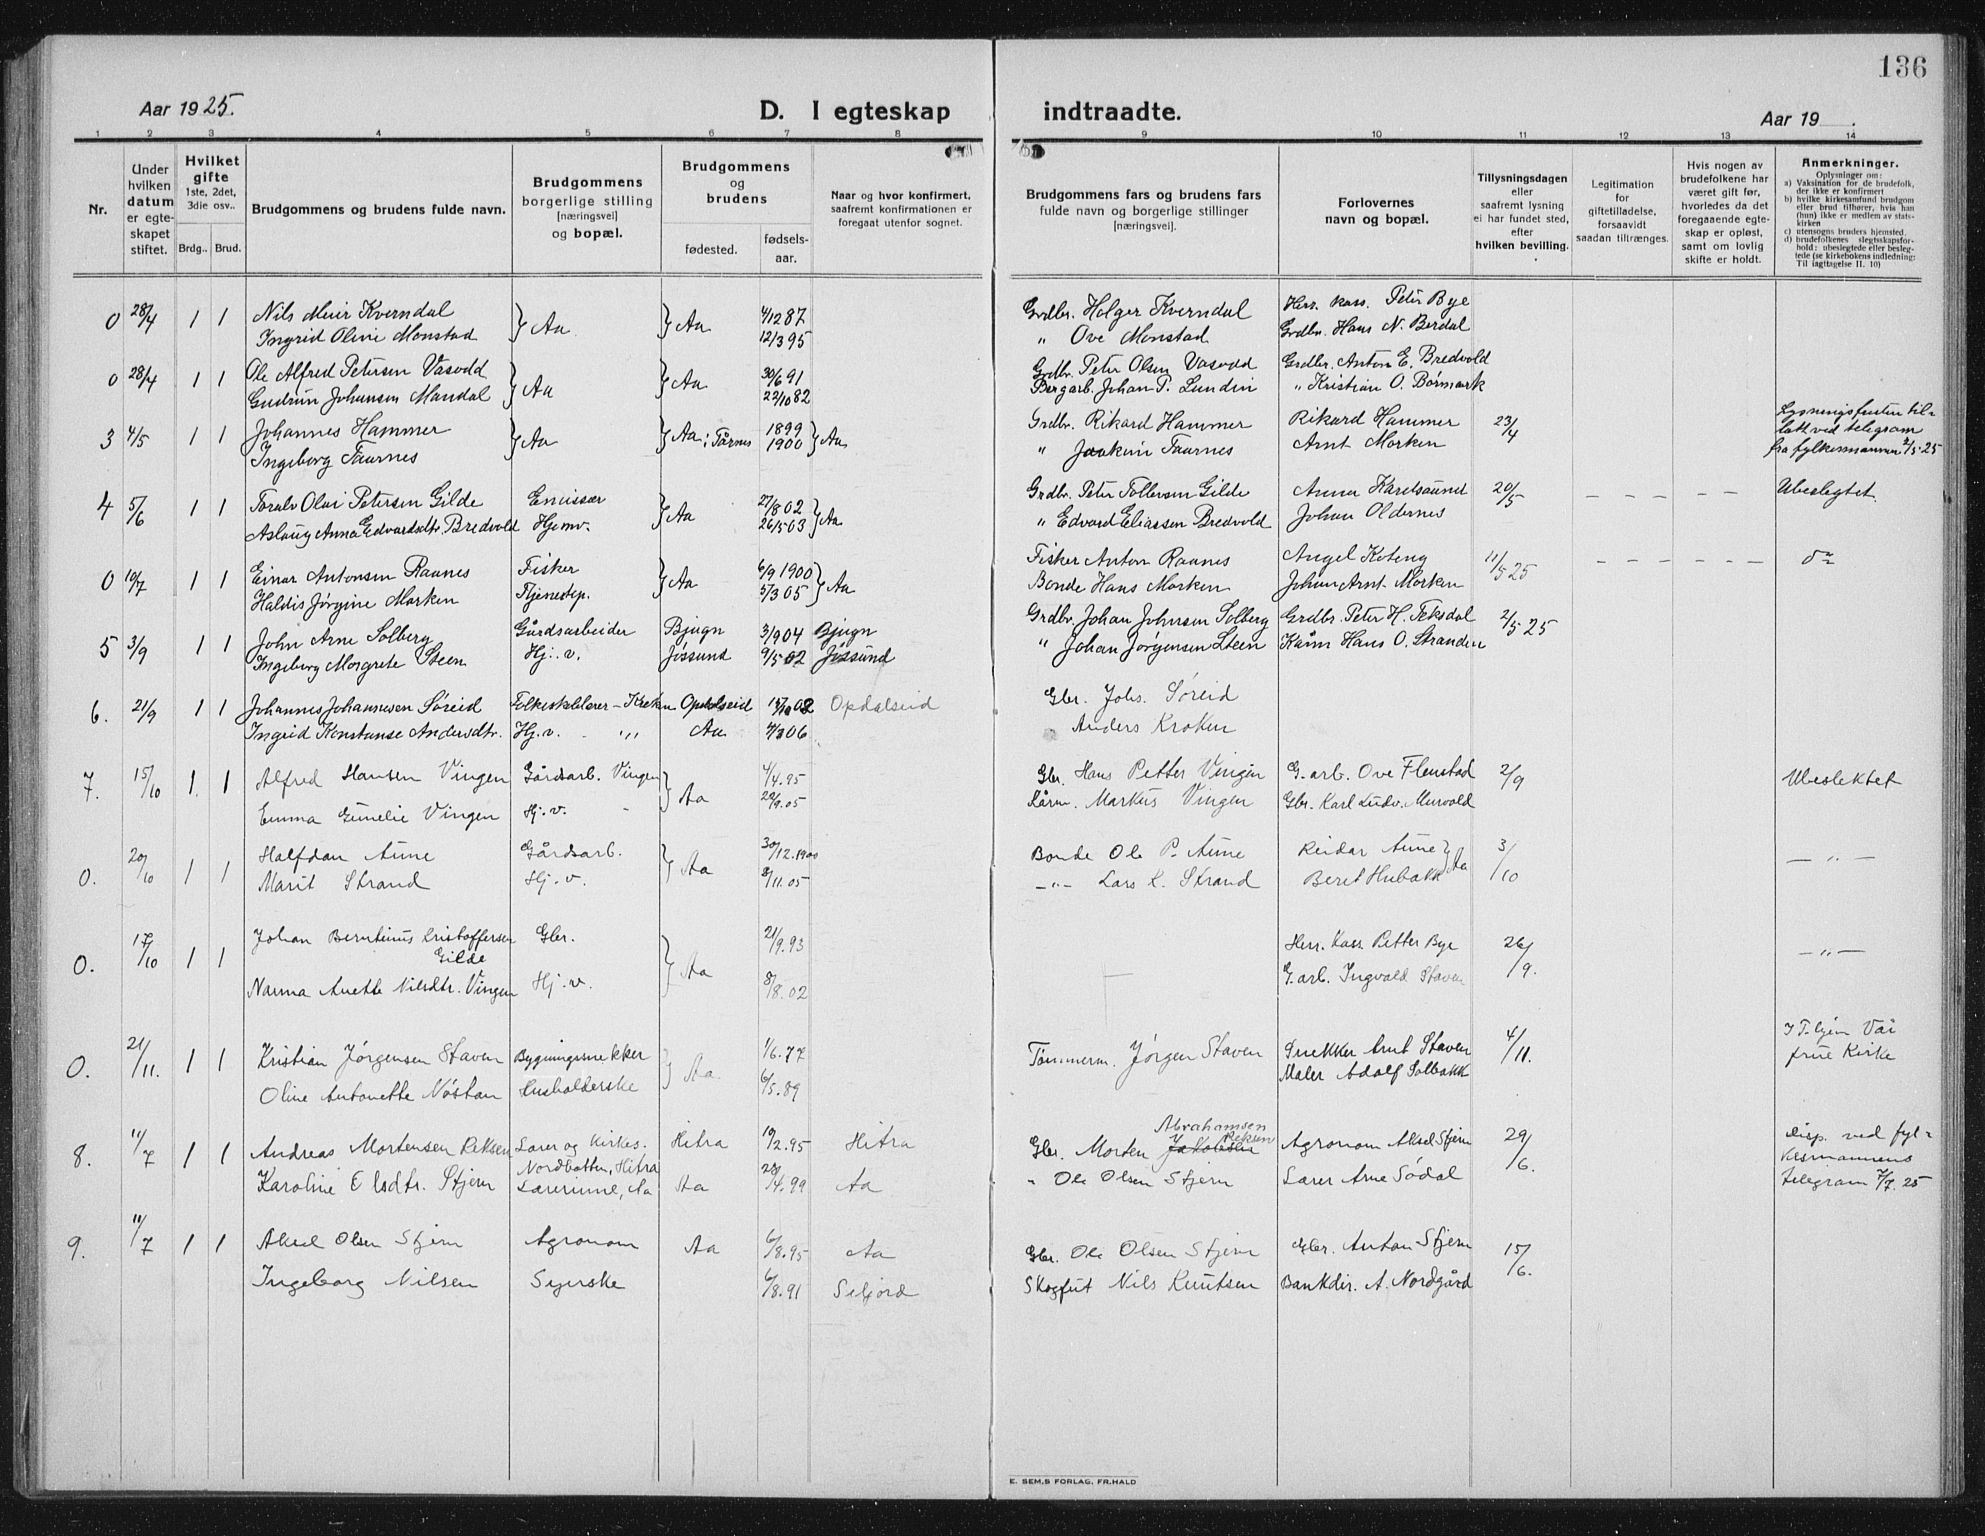 136
Aar 1925.
D. I egteskap
indtraadte.
Aar 19 .
1 2 3 4 5 6 7 8 9 10 11 12 13 14
Nr.
Under hvilken datum er egteskapet stiftet.
Hvilket gifte
1ste, 2det, 3die osv..
Brdg.. Brud.
Brudgommens og brudens fulde navn.
Brudgommens borgerlige stilling [næringsvei] og bopæl.
Brudgommens og brudens
fødested.
fødselsaar.
Naar og hvor konfirmert, saafremt konfirmationen er foregaat utenfor sognet.
Brudgommens fars og brudens fars fulde navn og borgerlige stillinger [næringsvei].
Forlovernes navn og bopæl.
Tillysningsdagen eller saafremt lysning ei har fundet sted, efter hvilken bevilling.
Legitimation for giftetilladelse, forsaavidt saadan tiltrænges.
Hvis nogen av brudefolkene har været gift før, hvorledes da det foregaaende egteskap er opløst, samt om lovlig skifte er holdt.
Anmerkninger.
Oplysninger om:
a) Vaksination for de brudefolk, der ikke er konfirmert
b) hvilke kirkesamfund brudgom eller brud tilhører, hvis han (hun) ikke er medlem av statskirken
c) utensogns bruders hjemsted.
d) brudefolkenes slegtsskapsforhold: ubeslegtede eller beslegtede (se kirkebokens indledning: Til iagttagelse II. 10)
0 28/4 1 1 Nils Meier Kverndal } Aa } Aa 4/12 87 Grdbr. Holger Kverndal Herr. kass. Peter Bye
Ingrid Oline Monstad 12/3 95 " Ove Monstad Grdbr. Hans N. Berdal
0 28/4 1 1 Ole Alfred Petersen Vasødd } Aa } Aa 30/6 91 Grdbr. Peter Olsen Vasødd Grdbr. Anton E. Bredvold
Gudrun Johansen Mandal 22/10 82 Bergarb. Johan P. Lundin " Kristian O. Børmark
3 4/5 1 1 Johannes Hammer } Aa } Aa ; Tårnes 1899 } Aa Grdbr. Rikard Hammer Rikard Hammer 23/4 Lysningsfristen til-
Ingeborg Taarnes 1900 " Joakim Taarnes Arnt Morken latt ved telegram
fra fylkesmannen 2/5-25
4 5/6 1 1 Toralv Olai Petersen Gilde Emissær } Aa 27/8 02 } Aa Grdbr. Peter Tollevsen Gilde Anna Haredsaunet 20/5 – – – – – Ubeslegtet
Aslaug Anna Edvardsdtr. Bredvold Hjemv. 26/5 03 " Edvard Eliassen Bredvold Johan Oldernes
0 10/7 1 1 Einar Antonsen Raanes Fisker } Aa 6/9 1900 } Aa Fisker Anton Raanes Angel Koteng 11/5 25 – – – – – – do
Haldis Jørgine Morken Tjenestep. 5/3 05 Bonde Hans Morken Johan Arnt Morken
5 3/9 1 1 John Arne Solberg Gårdsarbeider Bjugn 3/9 04 Bjugn Grdbr. Johan Johnsen Solberg Grdbr. Peter H. Teksdal 2/5 25
Ingeborg Morgrete Steen Hj. v. Jøssund 9/5 02 Jøssund " Johan Jørgensen Steen Kårm Hans O. Stranden
6. 21/9 1 1 Johannes Johannesen Søreid Folkeskolelærer – Kroken Opdalseid 02 Opdalseid Gbr. Johs. Søreid
Ingrid Konstanse Andersdtr. Hj. v. " Aa 06 Anders Kroken
7. 15/10 1 1 Alfred Hansen Vingen Gårdsarb. Vingen } Aa 4/4.95 Gbr. Hans Petter Vingen G. arb. Ove Flenstad 2/9 Ubeslektet
Emma Gunelie Vingen Hj. v. " 29/9.05 Kårm. Markus Vingen Gbr. Karl Ludv. Murvold
0. 20/10 1 1 Halfdan Aune Gårdsarb. } Aa 30/12.1900 Bonde Ole P. Aune Reidar Aune } Aa 3/10 – " –
Marit Strand Hj. v. 8/11.05 – " – Lars L. Strand Beret Hubakk
0. 17/10 1 1 Johan Berntinus Kristoffersen Gbr. } Aa 21/9.93 Herr. Kass. Petter Bye 26/9. – " –
Gilde
Narma Anette Nilsdtr. Vingen Hj. v. 8/8.02 G. arb. Ingvald Staven
0. 21/11. 1 1 Kristian Jørgensen Staven Bygningssnekker } Aa 1/6.77 Tømmerm. Jørgen Staven Snekker Arnt Staven 4/11. I T.hjem Vår
Oline Antonette Nøstan Husholderske 6/5.89 Maler Adolf Solbakk frue Kirke
8. 11/7 1 1 Andreas Mortensen Reksen Lærer og kirkes. Hitra 19/2.95 Hitra Gbr. Morten Jakobsen Abrahamsen Reksen Agronom Aksel Stjern 29/6. Disp. ved fyl-
Nordbotten, Hitra kesmannens
Karoline Olsdtr. Stjern Lærerinne, Aa Aa 28/4.99 Aa " Ole Olsen Stjern Lærer Arne Sødal telegram 7/7.25
9. 11/7 1 1 Aksel Olsen Stjern Agronom Aa 6/8.95 Aa Gbr. Ole Olsen Stjern Gbr. Anton Stjern 15/6.
Ingeborg Nilsen Syerske 6/8.91 Seljord Skogfut Nils Knutsen Bankdir. A. Nordgård
E. SEM.S FORLAG, FR.HALD